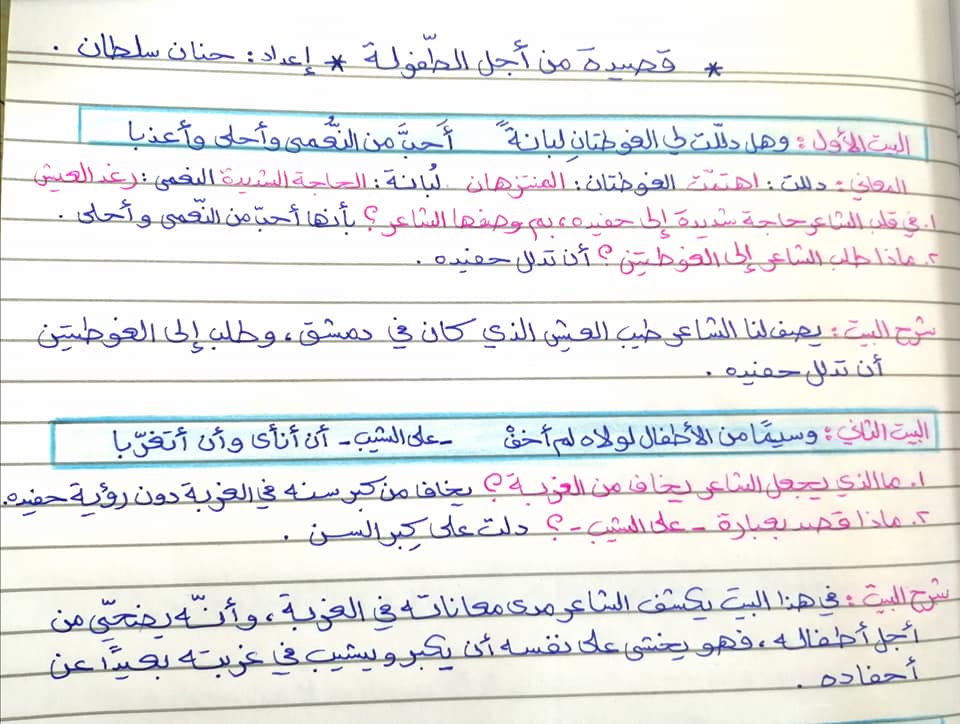 * قصيدة من أجل الطّفولة * إعداد: حنان سلطان .
البيت الأول: وهل دلّلت لي الغوطتانِ لبانةً أحبَّ من النُّعمى وأحلى وأعذبا
المعاني: دللت: اهتمّت الغوطتان: المنتزهان لُبانة: الحاجة الشديدة النعمى: رغد العيش
١. في قلب الشاعر حاجة شديدة إلى حفيده، بم وصفها الشاعر؟ بأنها أحبّ من النّعمى وأحلى .
٢. ماذا طلب الشاعر إلى الغوطتين؟ أن تدلل حفيده .
شرح البيت: يصف لنا الشاعر طيب العيش الذي كان في دمشق، وطلب إلى الغوطتين
أن تدلل حفيده .
البيت الثاني: وسيمًا من الأطفال لولاه لم أخفْ - على الشيب - أن أنأى وأن أتغرّبا
١. ما الذي يجعل الشاعر يخاف من الغربة؟ يخاف من كبر سنه في الغربة دون رؤية حفيده.
٢. ماذا قصد بعبارة - على الشيب -؟ دلت على كِبر السن .
شرح البيت: في هذا البيت يكشف الشاعر مدى معاناته في الغربة، وأنّه يضحّي من
أجل أطفاله، فهو يخشى على نفسه أن يكبر ويشيب في غربته بعيدًا عن
أحفاده .